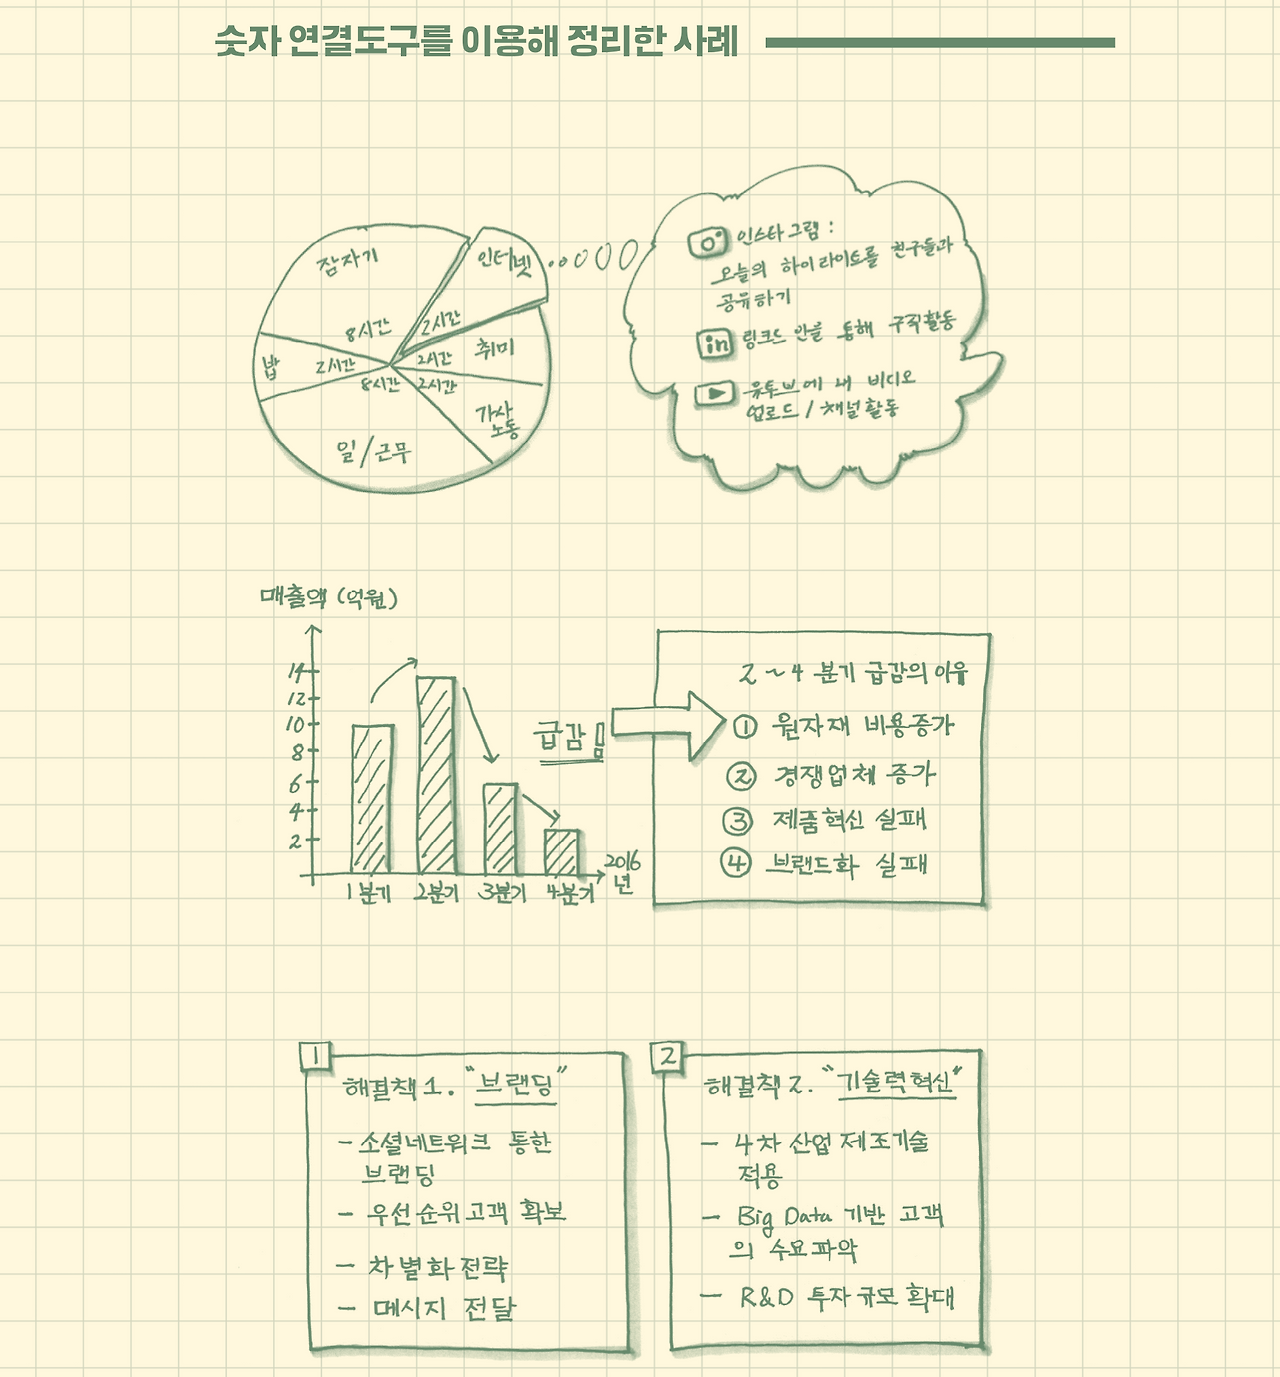 숫자 연결도구를 이용해 정리한 사례
잠자기
8시간
인터넷
2시간
취미
2시간
가사
노동
2시간
일/근무
8시간
밥
2시간
인스타그램 :
오늘의 하이라이트를 친구들과
공유하기
in 링크드 인을 통해 구직활동
유투브에 내 비디오
업로드 / 채널활동
매출액 (억원)
14
12
10
8
6
4
2
1분기 2분기 3분기 4분기
2016
년
급감!
2~4 분기 급감의 이유
① 원자재 비용증가
② 경쟁업체 증가
③ 제품혁신 실패
④ 브랜드화 실패
1
해결책 1. "브랜딩"
- 소셜네트워크 통한
브랜딩
- 우선순위고객 확보
- 차별화전략
- 메시지 전달
2
해결책 2. "기술력혁신"
- 4차 산업 제조기술
적용
- Big Data 기반 고객
의 수요파악
- R&D 투자규모 확대